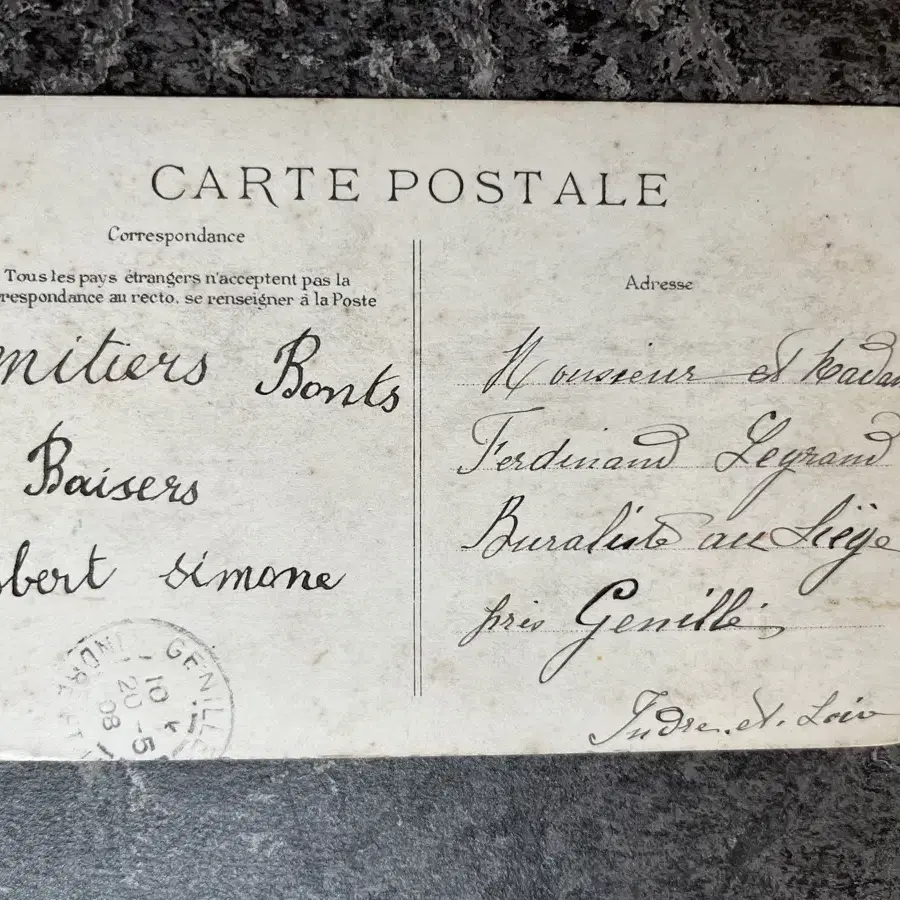 CARTE POSTALE
Correspondance
Tous les pays étrangers n'acceptent pas la
respondance au recto, se renseigner à la Poste
mitiers Bonts
Baisers
bert simone
Adresse
Monsieur et Madam
Ferdinand Legrand
Buraliste au Liège
près Genillé
Indre-et-Loir
GENILLÉ
INDRE ET L
10
20 -5
08